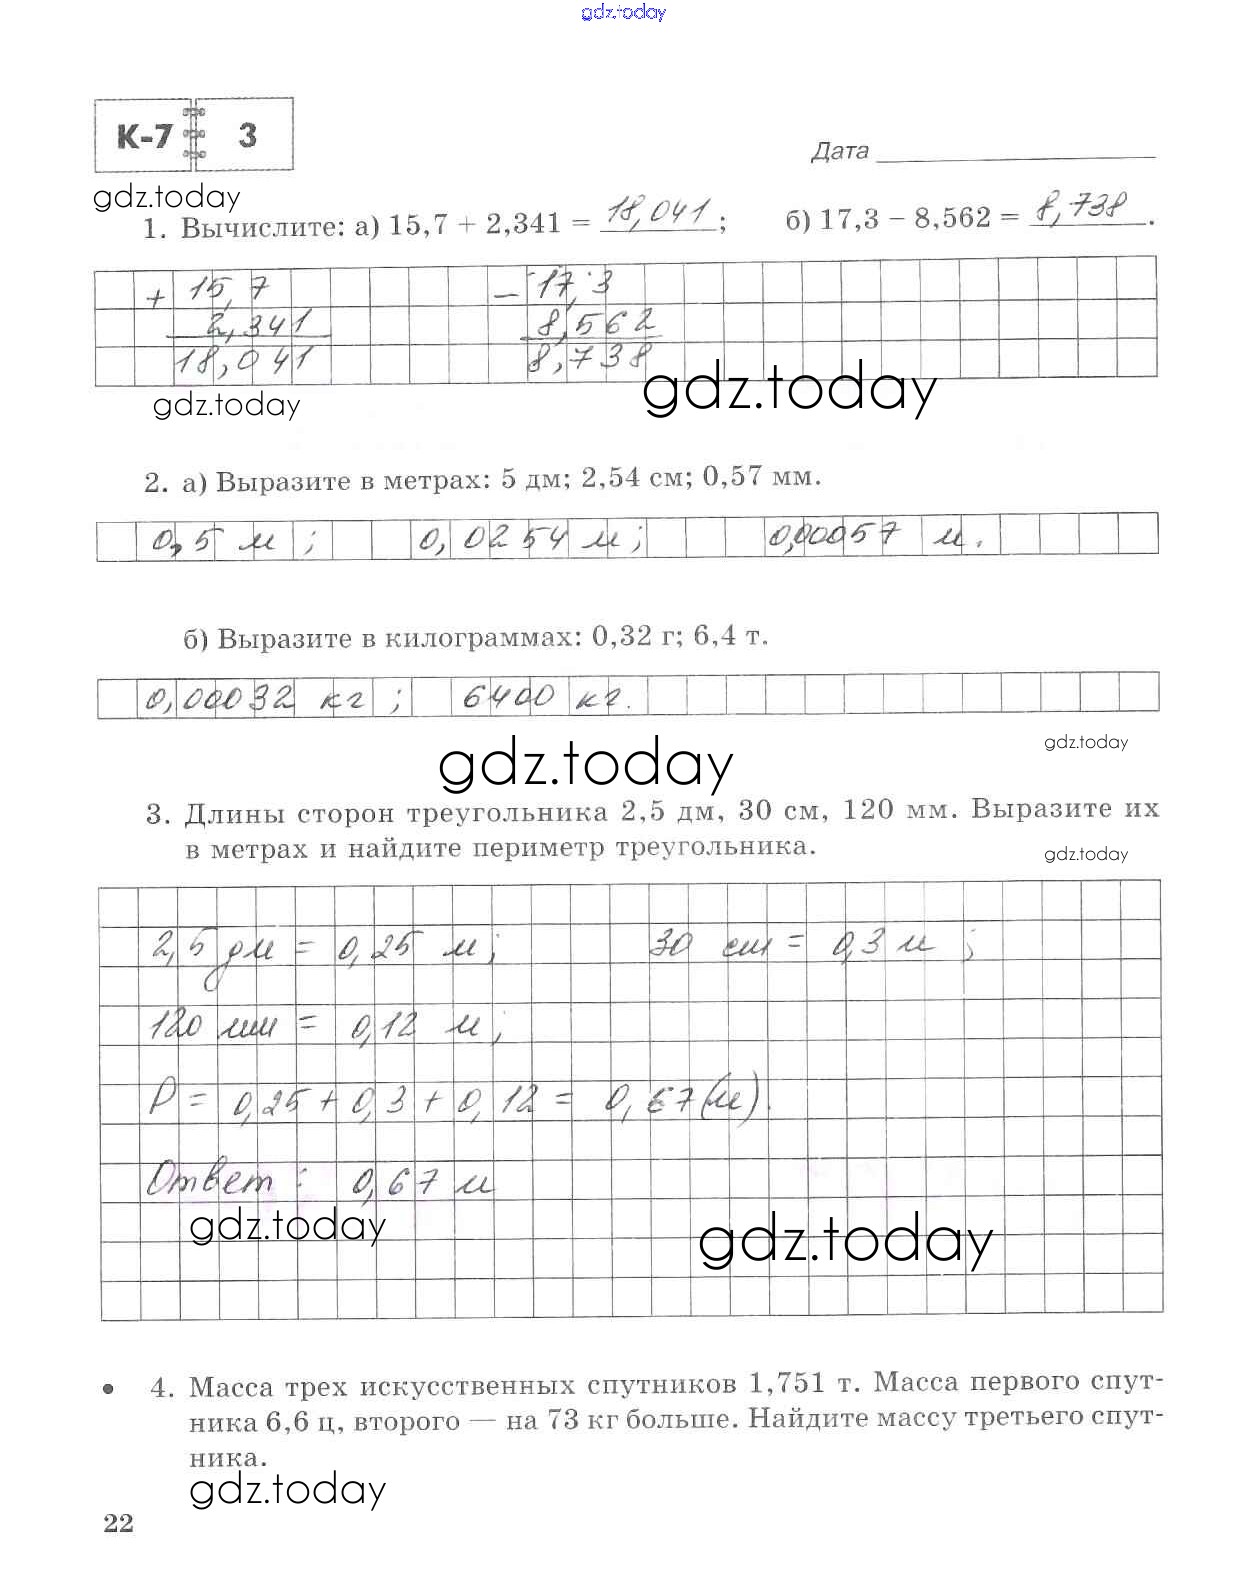 gdz.today
К-7 3
Дата
gdz.today
1. Вычислите: а) 15,7 + 2,341 = 18,041; б) 17,3 – 8,562 = 8,738.
+ 15,7 – 17,3
2,341 8,562
18,041 8,738
gdz.today
gdz.today
2. а) Выразите в метрах: 5 дм; 2,54 см; 0,57 мм.
0,5 м; 0,0254 м; 0,00057 м.
б) Выразите в килограммах: 0,32 г; 6,4 т.
0,00032 кг; 6400 кг.
gdz.today
gdz.today
3. Длины сторон треугольника 2,5 дм, 30 см, 120 мм. Выразите их
в метрах и найдите периметр треугольника.
gdz.today
2,5 дм = 0,25 м; 30 см = 0,3 м;
120 мм = 0,12 м;
P = 0,25 + 0,3 + 0,12 = 0,67 (м).
Ответ: 0,67 м
gdz.today
gdz.today
• 4. Масса трех искусственных спутников 1,751 т. Масса первого спут-
ника 6,6 ц, второго — на 73 кг больше. Найдите массу третьего спут-
ника.
gdz.today
22